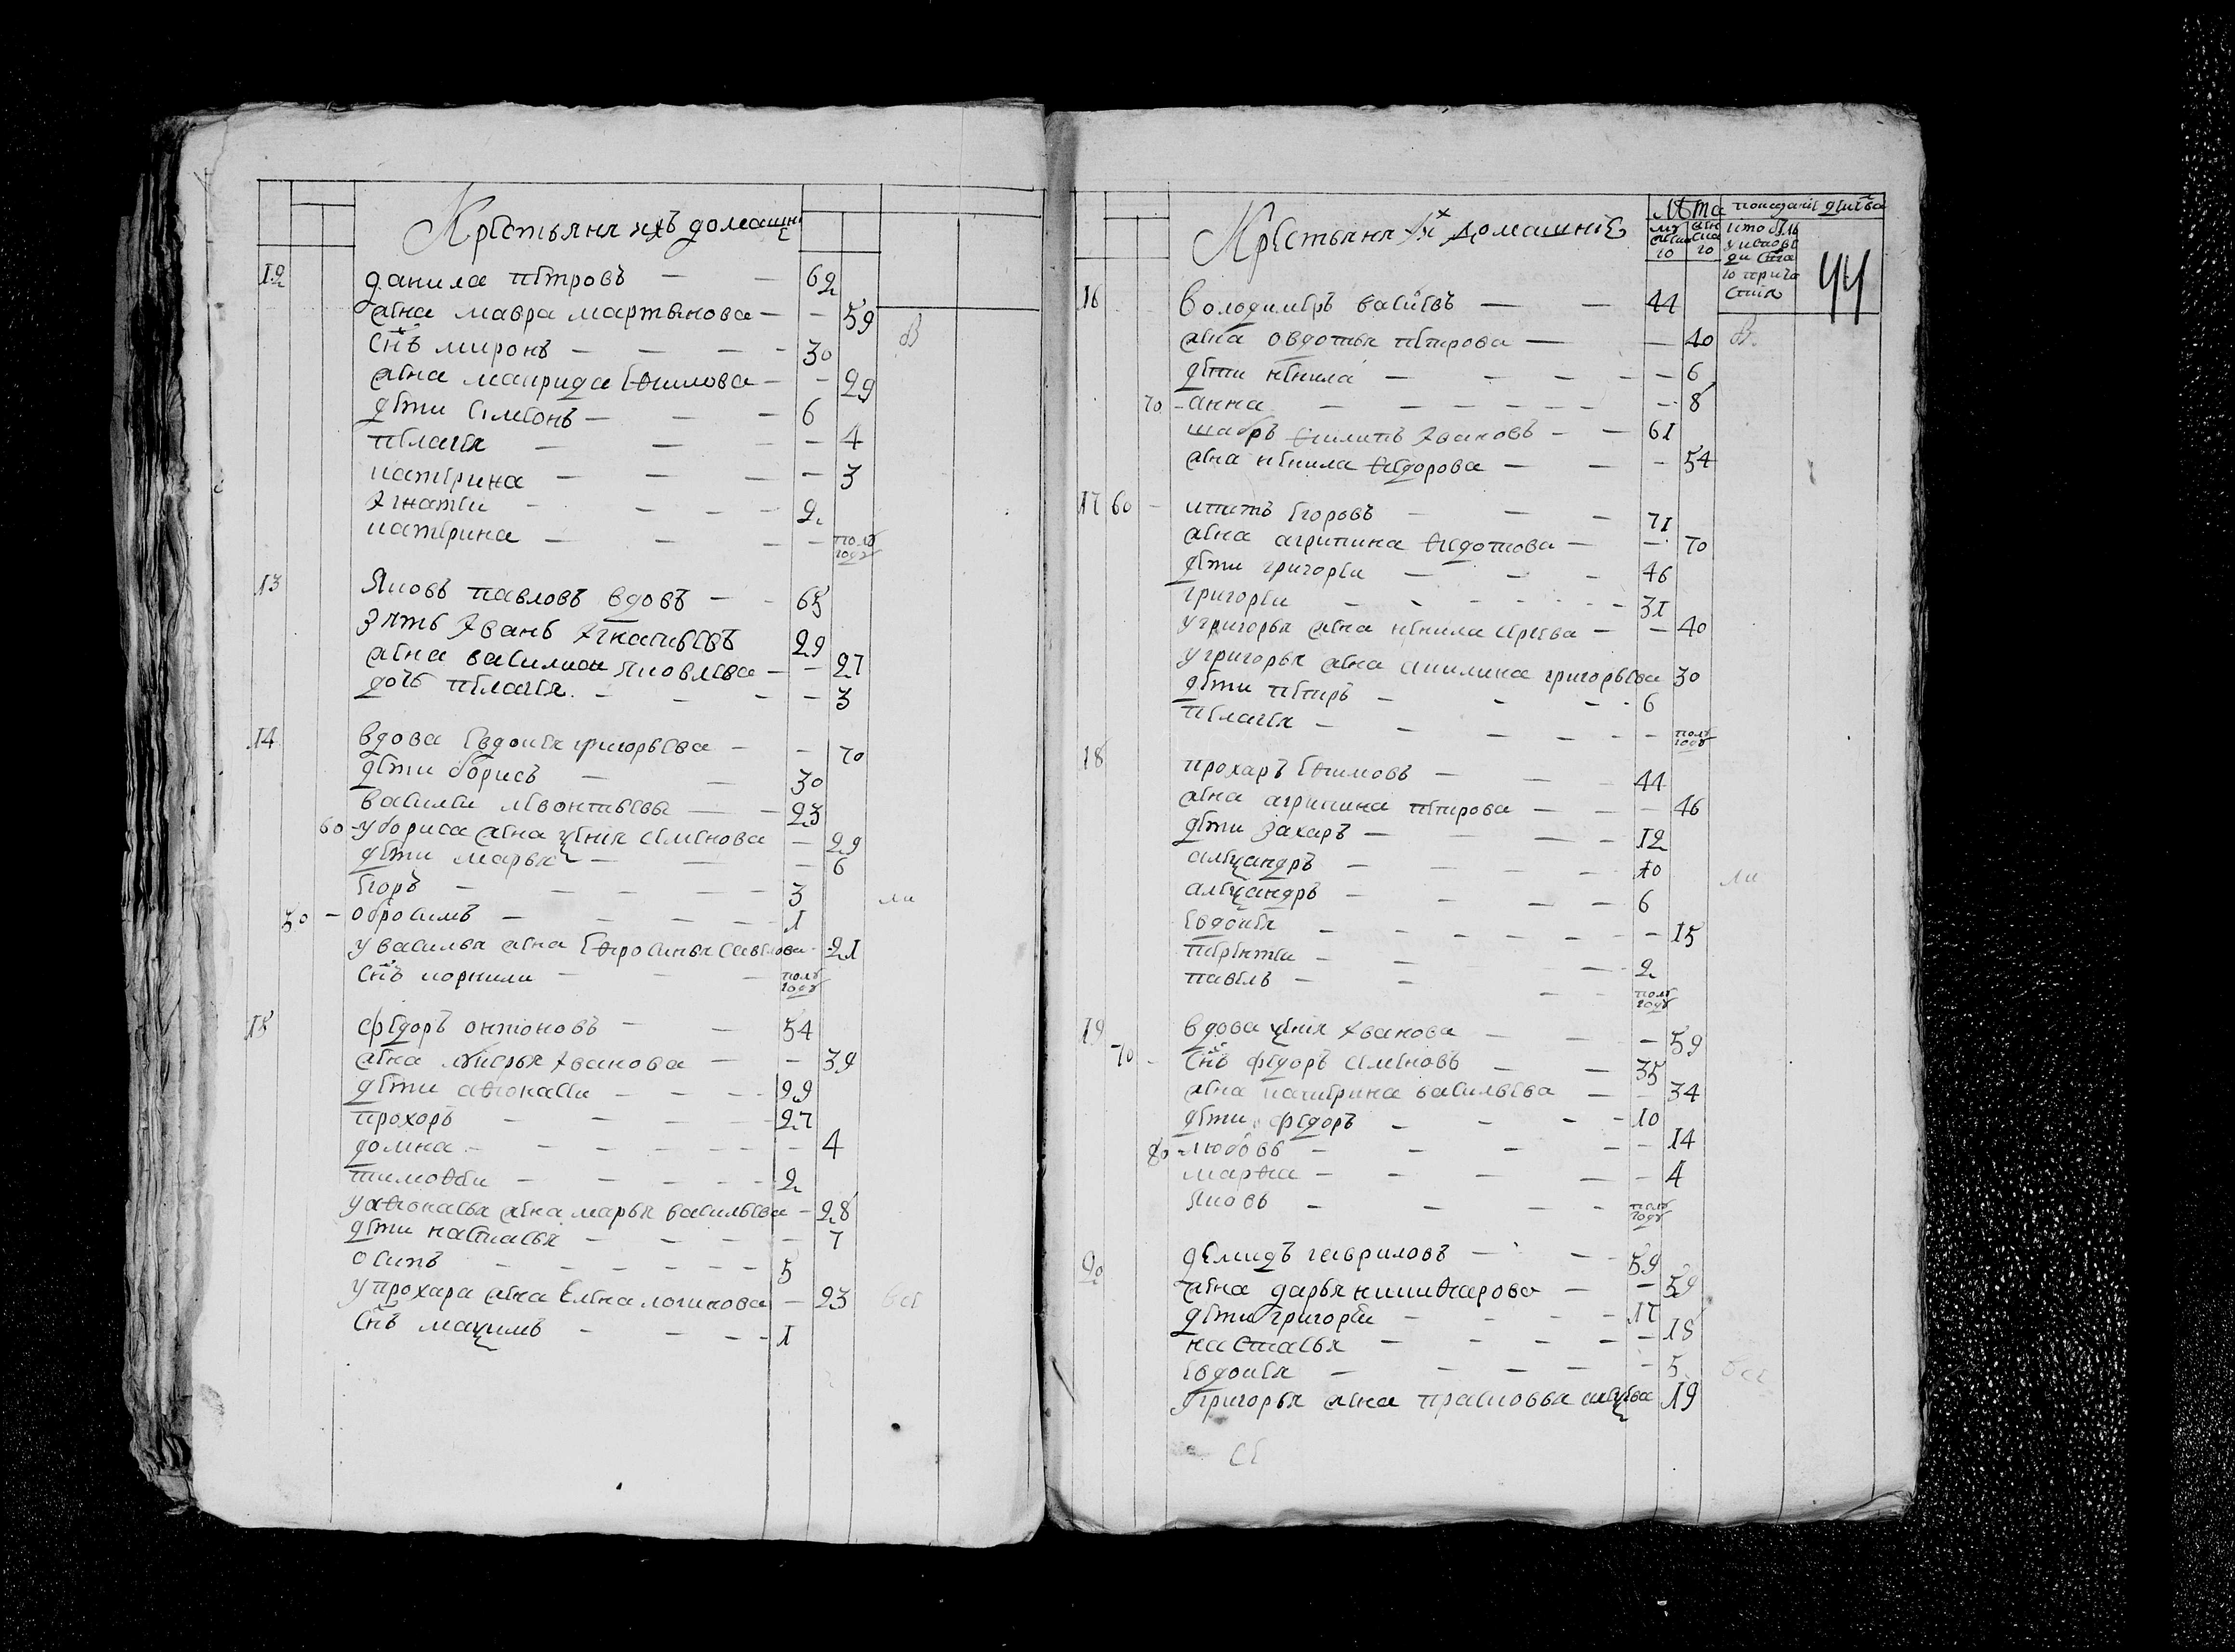 Крестьяня ихъ домашние
12 данила петровъ — — 62
жена мавра мартынова — — 59
снъ миронъ — — — 30
жена маирида ефимова — — 29
дети симеонъ — — 6
пелагея — — — 4
катерина — — — 3
Игнатеи — — — 2
катерина — — — полу году
13 Яковъ павловъ вдовъ — — 65
зять Иванъ Игнатьевъ 29
жена василиса яковлева — — 27
дочь пелагея — — — 3
14 вдова евдокея григорьева — — 70
дети борисъ — — 30
василеи левонтьевы — — 23
60 — у бориса жена ксения семенова — 29
дети марья — — — 6
егоръ — — — — 3
50 — обросимъ — — — — 1
у василья жена ефросинья савелова 21
снъ корнили — — — полу году
15 федоръ онтоновъ — — 54
жена марья Иванова — — 39
дети афонасеи — — — 29
прохоръ — — — — 27
домна — — — — — 4
тимофеи — — — — 2
у афонасья жена марья васильева — 28
дети настасья — — — — 7
осипъ — — — — — 5
у прохара жена елена логинова — 23
снъ максимъ — — — 1
все
Крестьяня их домашние
лета
мужеска го
женска го
показание действа
кто былъ у исповеди свята го прича стия
44
16 володимеръ васиевъ — — 44
жена овдотья петрова — — 40
дети ненила — — — — 6
70 — анна — — — — — 8
шабръ филипъ Ивановъ — — 61
жена ненила федорова — — — 54
17 60 — ипатъ егоровъ — — — 71
жена агрипина федотова — — 70
дети григореи — — — 46
григореи — — — — 31
у григорья жена ненила сергева — — 40
у григорья жена акилина григорьева 30
дети петръ — — — 6
пелагея — — — — — полу году
18 прохаръ ефимовъ — — 44
жена агрипина петрова — — — 46
дети захаръ — — — 12
александръ — — — 10
александръ — — — — 6
евдокея — — — — — 15
терентеи — — — 2
павелъ — — — полу году
19 вдова ксения Иванова — — — 59
70 — снъ федоръ семеновъ — — 35
жена катерина васильева — — 34
дети федоръ — — — 10
80 — любовь — — — — 14
марфа — — — — — 4
Яковъ — — — — полу году
20 демидъ гавриловъ — — 59
жена дарья никифарова — — 59
дети григореи — — — 17
настасья — — — — 18
евдокея — — — — 5
у григорья жена прасковья алексева 19